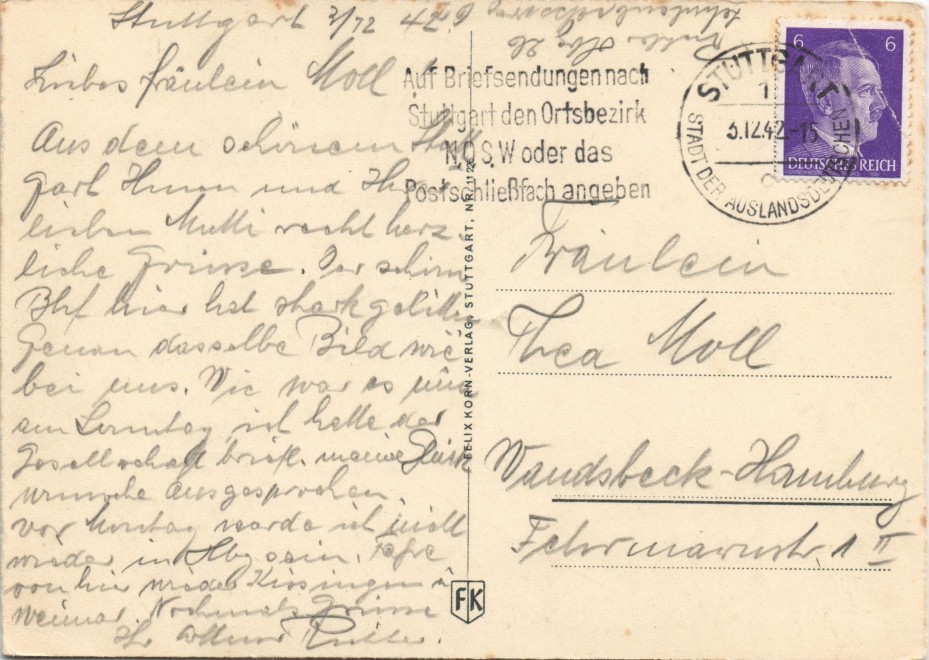 Stuttgart 3/12 42.
Liebes Fräulein Moll!
Aus dem schönen Stutt
gart Ihnen und Ihrer
lieben Mutti recht herz
liche Grüsse. Der schöne
Bhf hier hat stark gelitten
Genau dasselbe Bild wie
bei uns. Wie war es nun
am Sonntag ich hatte der
Gesellschaft briefl. meine Glück
wünsche ausgesprochen.
Vor Montag werde ich nicht
wieder in Hbg sein. Fahre
von hier wieder Kissingen u
Weimar. Nochmals Grüsse
Ihr
Auf Briefsendungen nach
Stuttgart den Ortsbezirk
N,O,S,W oder das
Postschließfach angeben
STUTTGART
1
3.12.42.-15
STADT DER AUSLANDSDEUTSCHEN
6 6
DEUTSCHES REICH
FELIX KORN-VERLAG, STUTTGART, NR. 112
Fräulein
Thea Moll
Wandsbeck-Hamburg
Fehrmarnstr. 1 II
FK